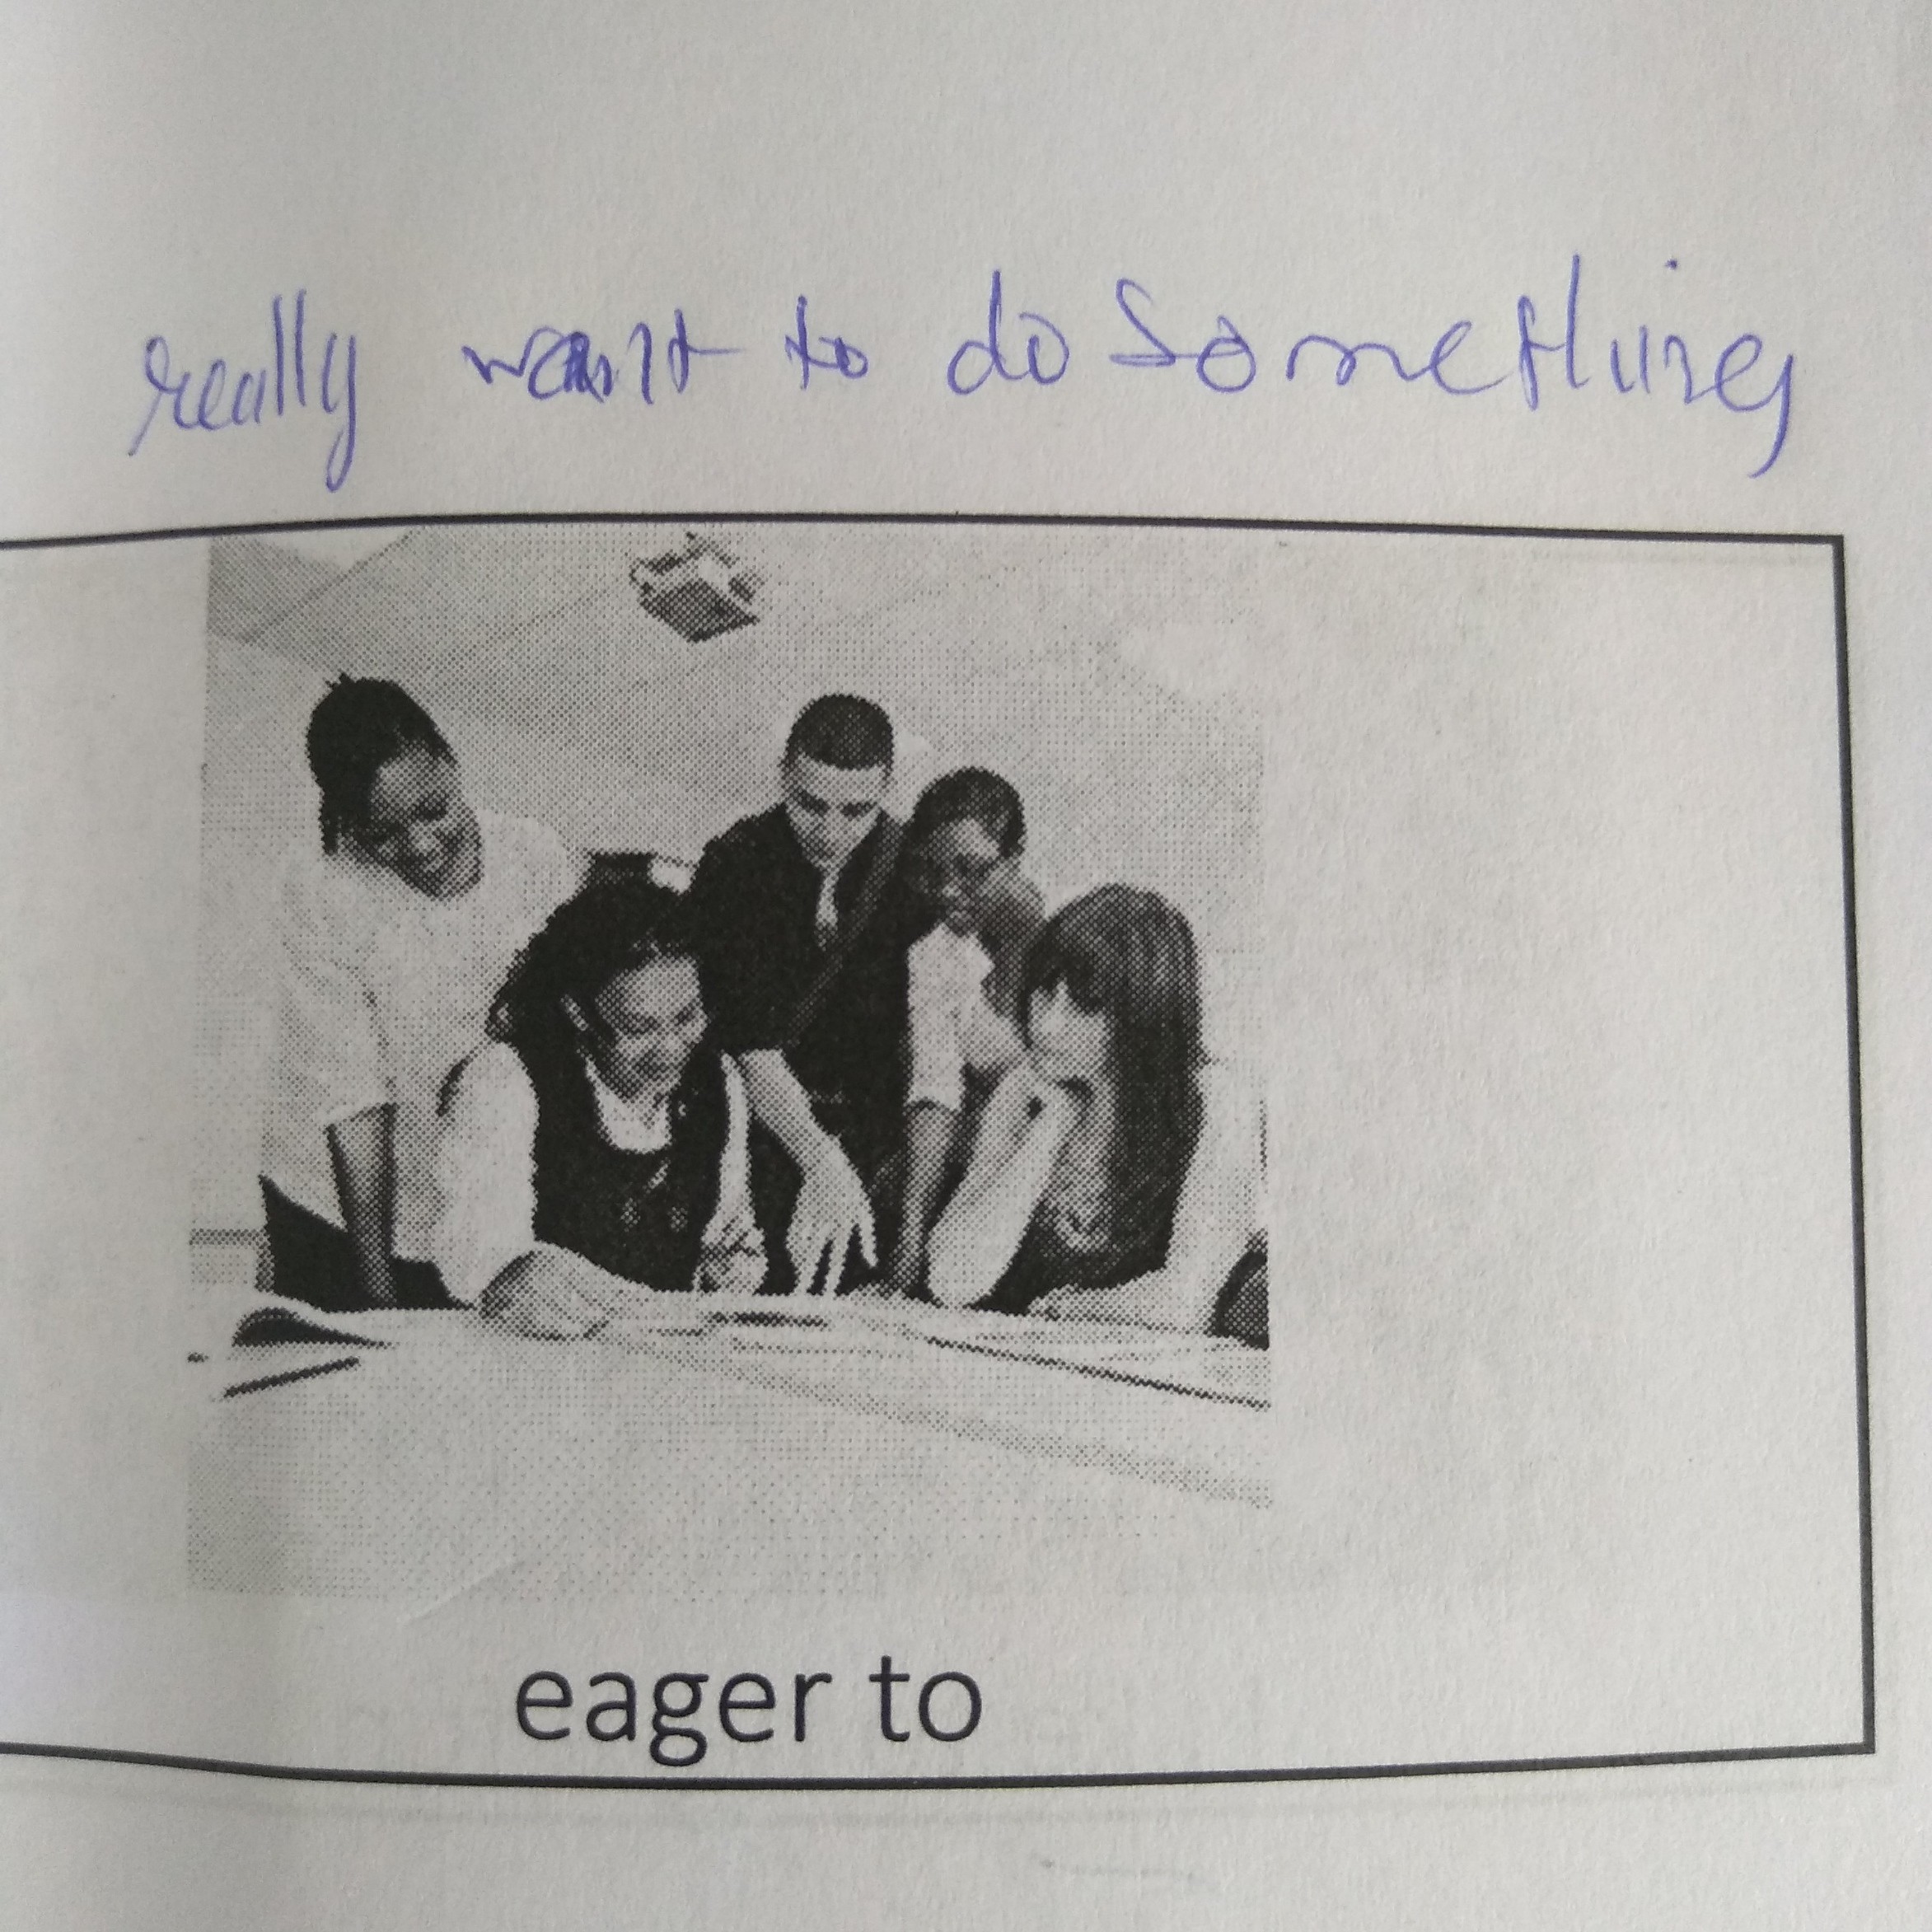 really want to do something
eager to